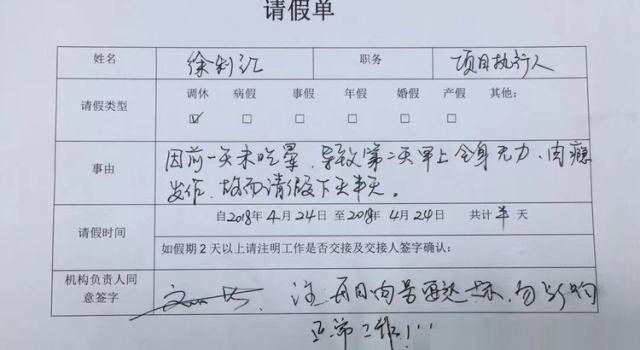 请假单
姓名 徐利江 职务 项目执行人
请假类型 调休 病假 事假 年假 婚假 产假 其他:
☑ □ □ □ □ □
因前一天未吃晕,导致第二天早上全身无力、肉瘾
事由
发作,故而请假下天半天。
自2018年4月24日至2018年4月24日 共计半天
请假时间
如假期2天以上请注明工作是否交接及交接人签字确认:
机构负责人同
意签字
注 每日肉量要达标,勿影响
正常工作!